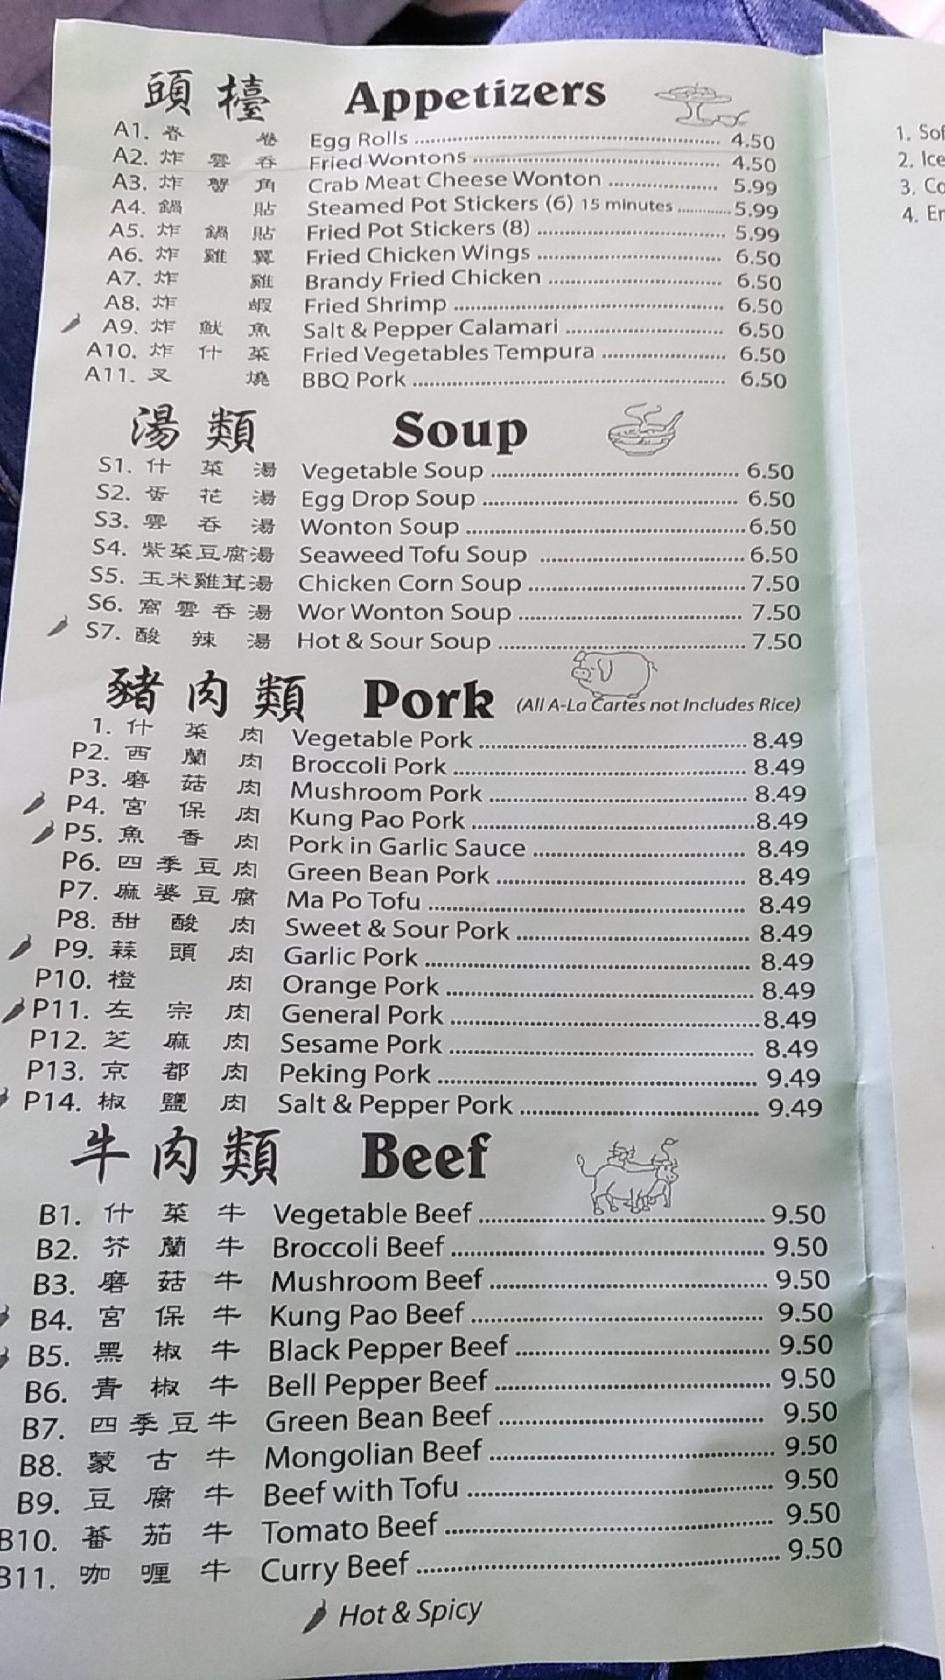 頭檯 Appetizers
A1. 春卷 Egg Rolls 4.50
A2. 炸雲吞 Fried Wontons 4.50
A3. 炸蟹角 Crab Meat Cheese Wonton 5.99
A4. 鍋貼 Steamed Pot Stickers (6) 15 minutes 5.99
A5. 炸鍋貼 Fried Pot Stickers (8) 5.99
A6. 炸雞翼 Fried Chicken Wings 6.50
A7. 炸雞 Brandy Fried Chicken 6.50
A8. 炸蝦 Fried Shrimp 6.50
A9. 炸魷魚 Salt & Pepper Calamari 6.50
A10. 炸什菜 Fried Vegetables Tempura 6.50
A11. 叉燒 BBQ Pork 6.50
湯類 Soup
S1. 什菜湯 Vegetable Soup 6.50
S2. 蛋花湯 Egg Drop Soup 6.50
S3. 雲吞湯 Wonton Soup 6.50
S4. 紫菜豆腐湯 Seaweed Tofu Soup 6.50
S5. 玉米雞茸湯 Chicken Corn Soup 7.50
S6. 窩雲吞湯 Wor Wonton Soup 7.50
S7. 酸辣湯 Hot & Sour Soup 7.50
豬肉類 Pork (All A-La Cartes not Includes Rice)
1. 什菜肉 Vegetable Pork 8.49
P2. 西蘭肉 Broccoli Pork 8.49
P3. 磨菇肉 Mushroom Pork 8.49
P4. 宮保肉 Kung Pao Pork 8.49
P5. 魚香肉 Pork in Garlic Sauce 8.49
P6. 四季豆肉 Green Bean Pork 8.49
P7. 麻婆豆腐 Ma Po Tofu 8.49
P8. 甜酸肉 Sweet & Sour Pork 8.49
P9. 蒜頭肉 Garlic Pork 8.49
P10. 橙肉 Orange Pork 8.49
P11. 左宗肉 General Pork 8.49
P12. 芝麻肉 Sesame Pork 8.49
P13. 京都肉 Peking Pork 9.49
P14. 椒鹽肉 Salt & Pepper Pork 9.49
牛肉類 Beef
B1. 什菜牛 Vegetable Beef 9.50
B2. 芥蘭牛 Broccoli Beef 9.50
B3. 磨菇牛 Mushroom Beef 9.50
B4. 宮保牛 Kung Pao Beef 9.50
B5. 黑椒牛 Black Pepper Beef 9.50
B6. 青椒牛 Bell Pepper Beef 9.50
B7. 四季豆牛 Green Bean Beef 9.50
B8. 蒙古牛 Mongolian Beef 9.50
B9. 豆腐牛 Beef with Tofu 9.50
B10. 蕃茄牛 Tomato Beef 9.50
B11. 咖喱牛 Curry Beef 9.50
Hot & Spicy
1.
2. Ice
3.
4.